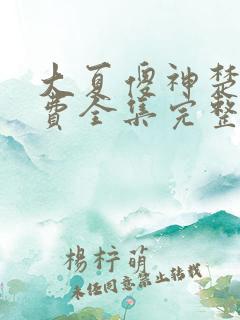 大夏傻神楚
费全集完整
杨梓萌
未经同意禁止转载